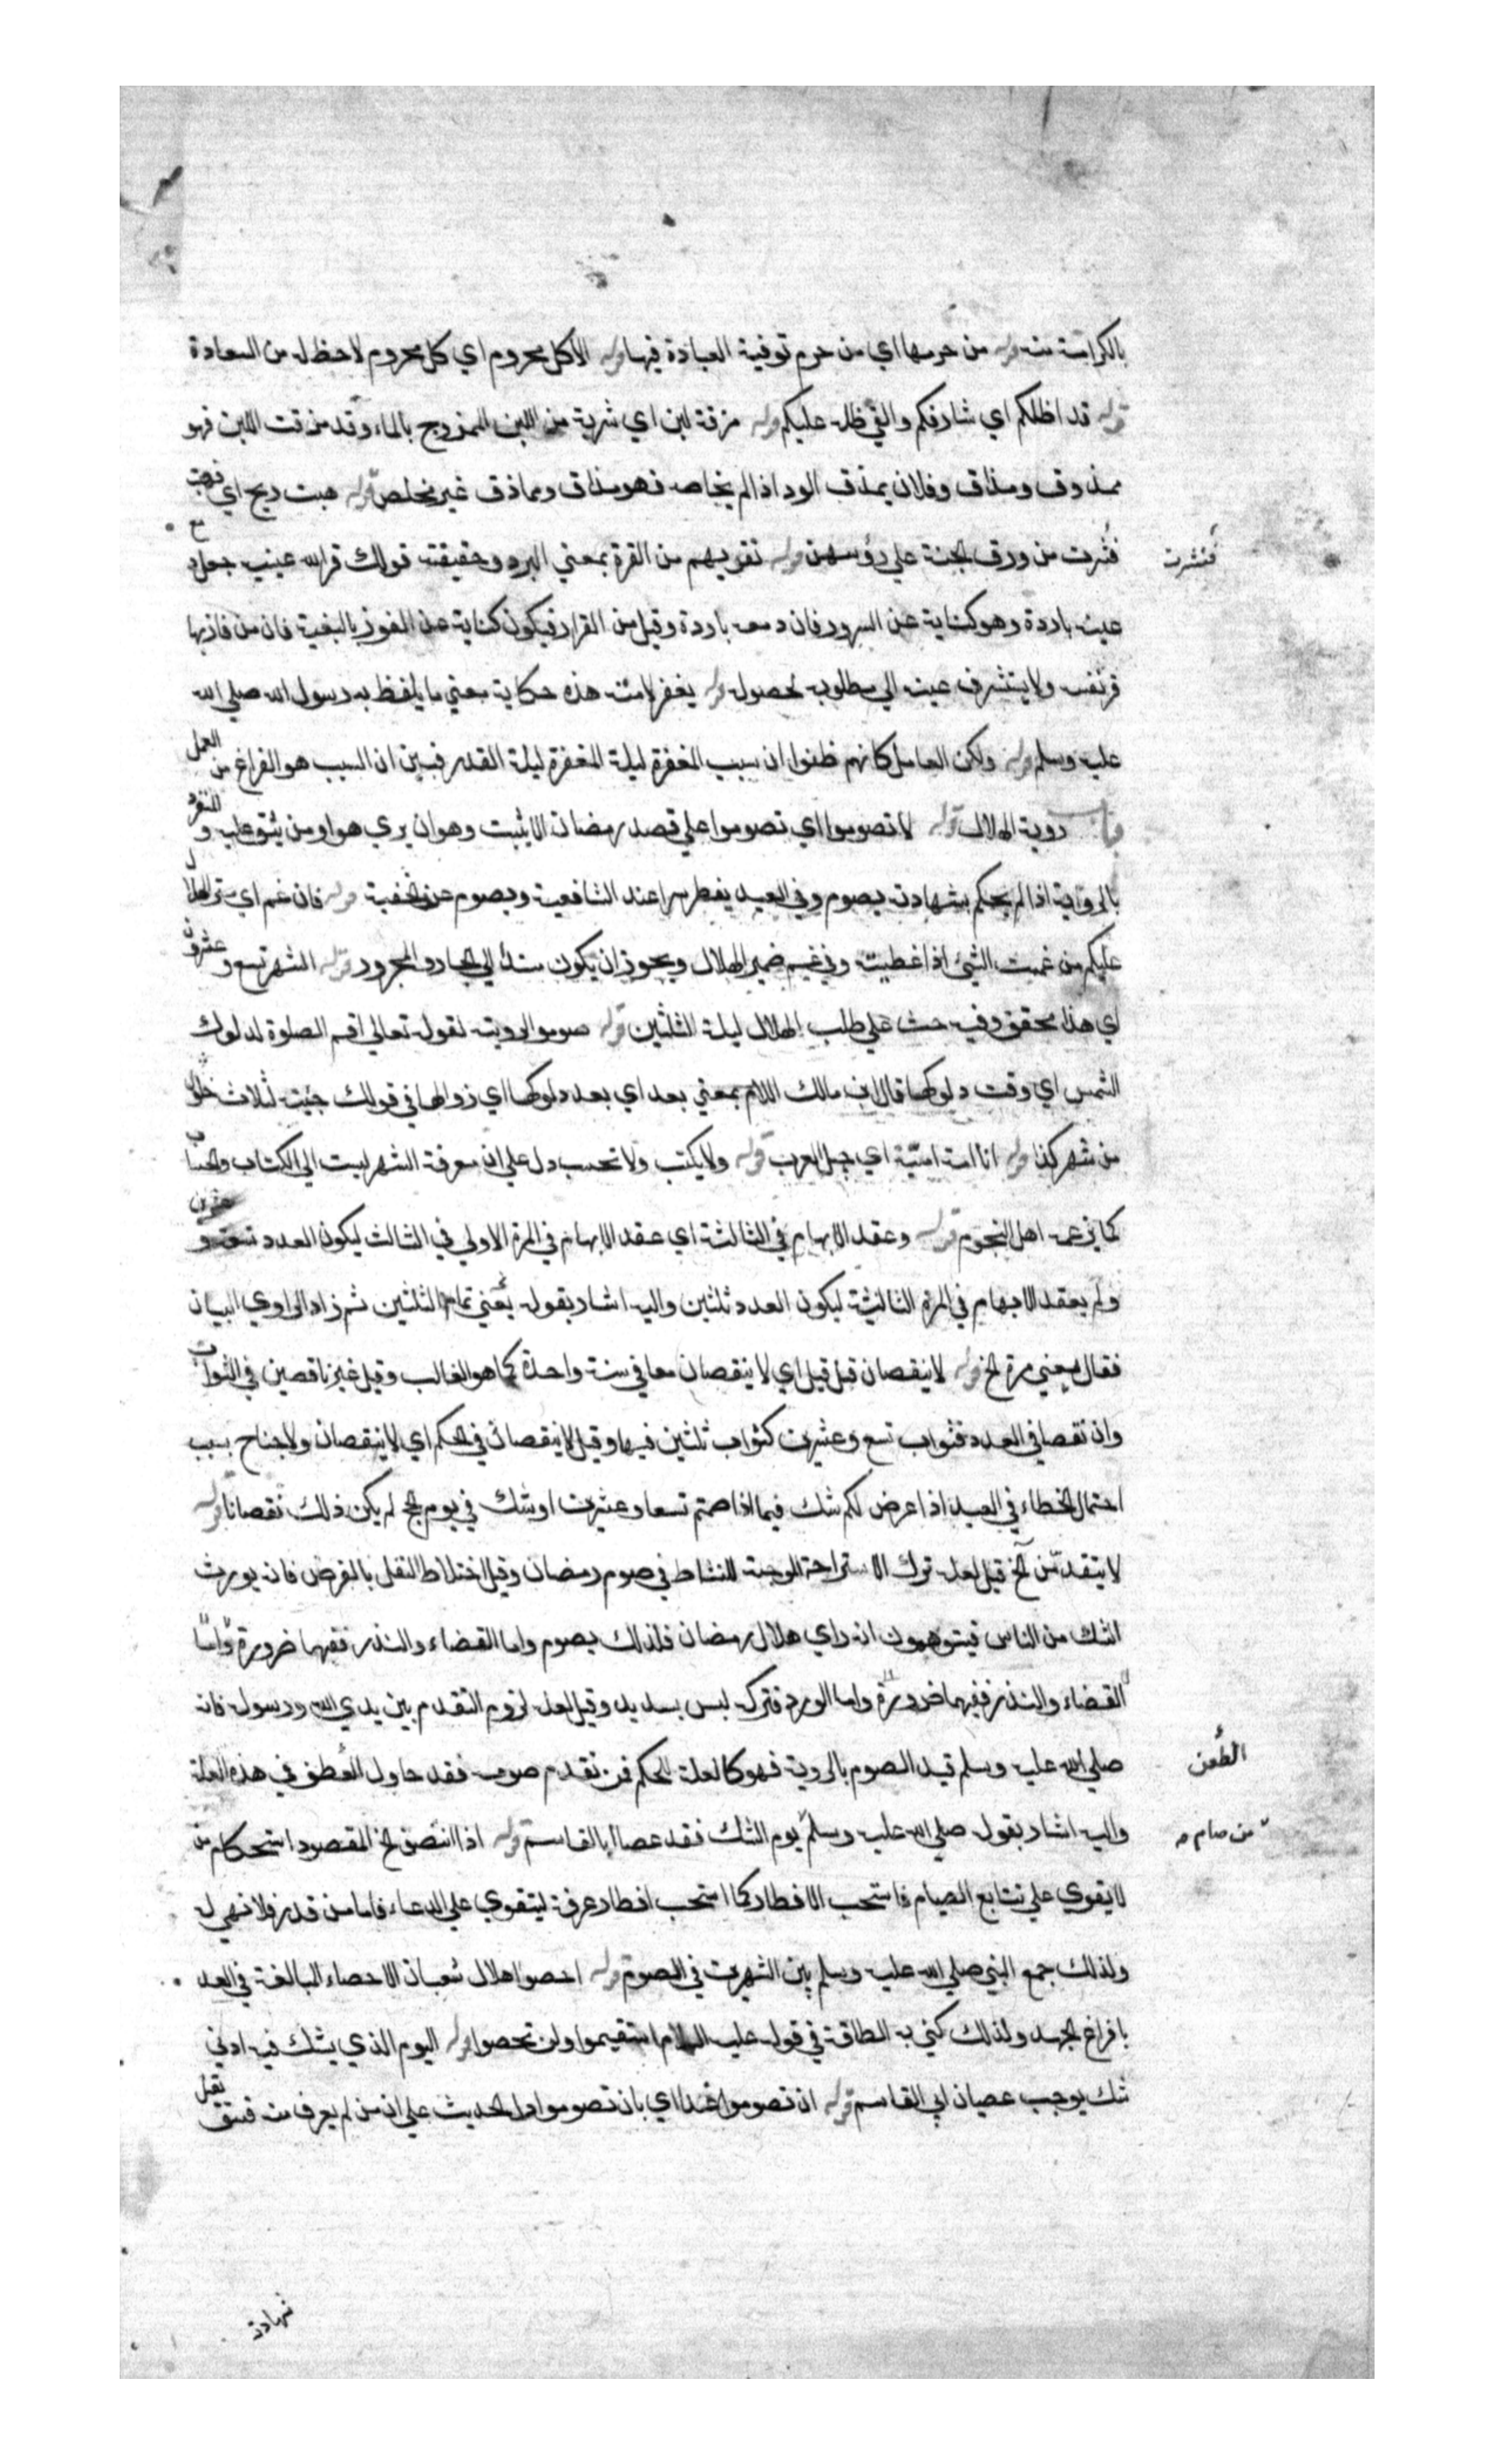 بالكرامة منه قوله من حرمها اي من حرم توفية العبادة فيها قوله الا كل محروم اي كل محروم لا حظ له من السعادة
قوله قد اظلكم اي شارفكم والقي ظله عليكم قوله مزقة لبن اي شربة من اللبن الممزوج بالماء وقد مذقت اللبن فهو
ممذوق ومذاق وفلان يمذق الود اذا لم يخلصه فهو مذاق ومماذق غير مخلص قوله هبت ريح اي فهبت
فنثرت من ورق الجنة علي رؤسهن قوله تقر بهم من القرة بمعني البرد وحقيقته قولك قر الله عينيه جعل د
فنثرت
عينه باردة وهو كناية عن السرور فان دمعه باردة وقيل من القرار فيكون كناية عن الفوز بالبغية فان من فاز بها
قر نفسه ولا يستشرف عينه الي مطلوبه لحصوله قوله يغفر لامته هذه حكاية معني ما يلفظ به رسول الله صلي الله
عليه وسلم قوله ولكن العامل كانهم ظنوا ان سبب المغفرة ليلة المغفرة ليلة القدر فبين ان السبب هو الفراغ من العمل
باب روية الهلال قوله لا تصوموا اي تصوموا علي قصد رمضان الا يثبت وهو ان يري هو او من يثق عليه و للتفرد
بالرواية اذا لم يحكم بشهادته يصوم وفي العيد يفطر سرا عند الشافعية ويصوم عند الحنفية قوله فان غم اي ستر الهلال
عليكم من غميت الشئ اذا غطيته وفي غم ضمير الهلال ويجوز ان يكون مسندا الي الجار والمجرور قوله الشهر تسع وعشرون
اي هذا محقق وفيه حث علي طلب الهلال ليلة الثلثين قوله صوموا لرويته لقوله تعالي اقم الصلوة لدلوك
الشمس اي وقت دلوكها قال ابن مالك اللام بمعني بعد اي بعد دلوكها اي زوالها في قولك جئته لثلاث خلون
من شهر كذا قوله انا امة امية اي جيل العرب قوله ولا يكتب ولا تحسب دل علي ان معرفة الشهر ليست الي الكتاب والحساب
كما يزعمه اهل النجوم قوله وعقد الابهام في الثالثة اي عقد الابهام في المرة الاولي في الثالث ليكون العدد تسعة وعشرين
ولم يعقد الابهام في المرة الثالثة ليكون العدد ثلثين واليه اشار بقوله يعني تمام الثلثين ثم زاد الراوي البيان
فقال يعني مرة الخ قوله لا ينقصان قبل قيل اي لا ينقصان معا في سنة واحدة كما هو الغالب وقيل غير ناقصين في الثواب
وان نقصا في العدد فثواب تسع وعشرين كثواب ثلثين فيها وقيل لا ينقصان في الحكم اي لا ينقصان ولا جناح بسبب
احتمال الخطاء في العيد اذا عرض لكم شك فيما اذا صمتم تسعا وعشرين او شك في يوم الحج لم يكن ذلك نقصانا قوله
لا يتقدمن الخ قيل لعله ترك الاستراحة الموجبة للنشاط في صوم رمضان وقيل اختلاط النفل بالفرض فانه يورث
الشك من الناس فيتوهمون انه راي هلال رمضان فلذلك يصوم واما القضاء والنذر ففيهما ضرورة واما
القضاء والنذر ففيهما ضرورة واما الورد فتركه ليس بسديد وقيل لعله لزوم التقدم بين يدي الله ورسوله فانه
صلي الله عليه وسلم قيد الصوم بالروية فهو كالعلة للحكم فمن تقدم صومه فقد حاول الطعن في هذه العلة
الطعن
واليه اشار بقوله صلي الله عليه وسلم يوم الشك فقد عصا ابا القاسم قوله اذا انتصف الخ المقصود استحكام من
من صام
لا يقوي علي تتابع الصيام فاستحب الافطار كما استحب افطار عرفة ليتقوي علي الدعاء فاما من قدر فلا نهي له
ولذلك جمع النبي صلي الله عليه وسلم بين الشهرين في الصوم قوله احصوا هلال شعبان الاحصاء المبالغة في العد
بافراغ الجهد ولذلك كني به الطاقة في قوله عليه السلام استقيموا ولن تحصوا قوله اليوم الذي يشك فيه ادني
شك يوجب عصيان ابي القاسم قوله ان تصوموا غدا اي بان تصوموا دل الحديث علي ان من لم يعرف منه فسق تقبل
شهادته